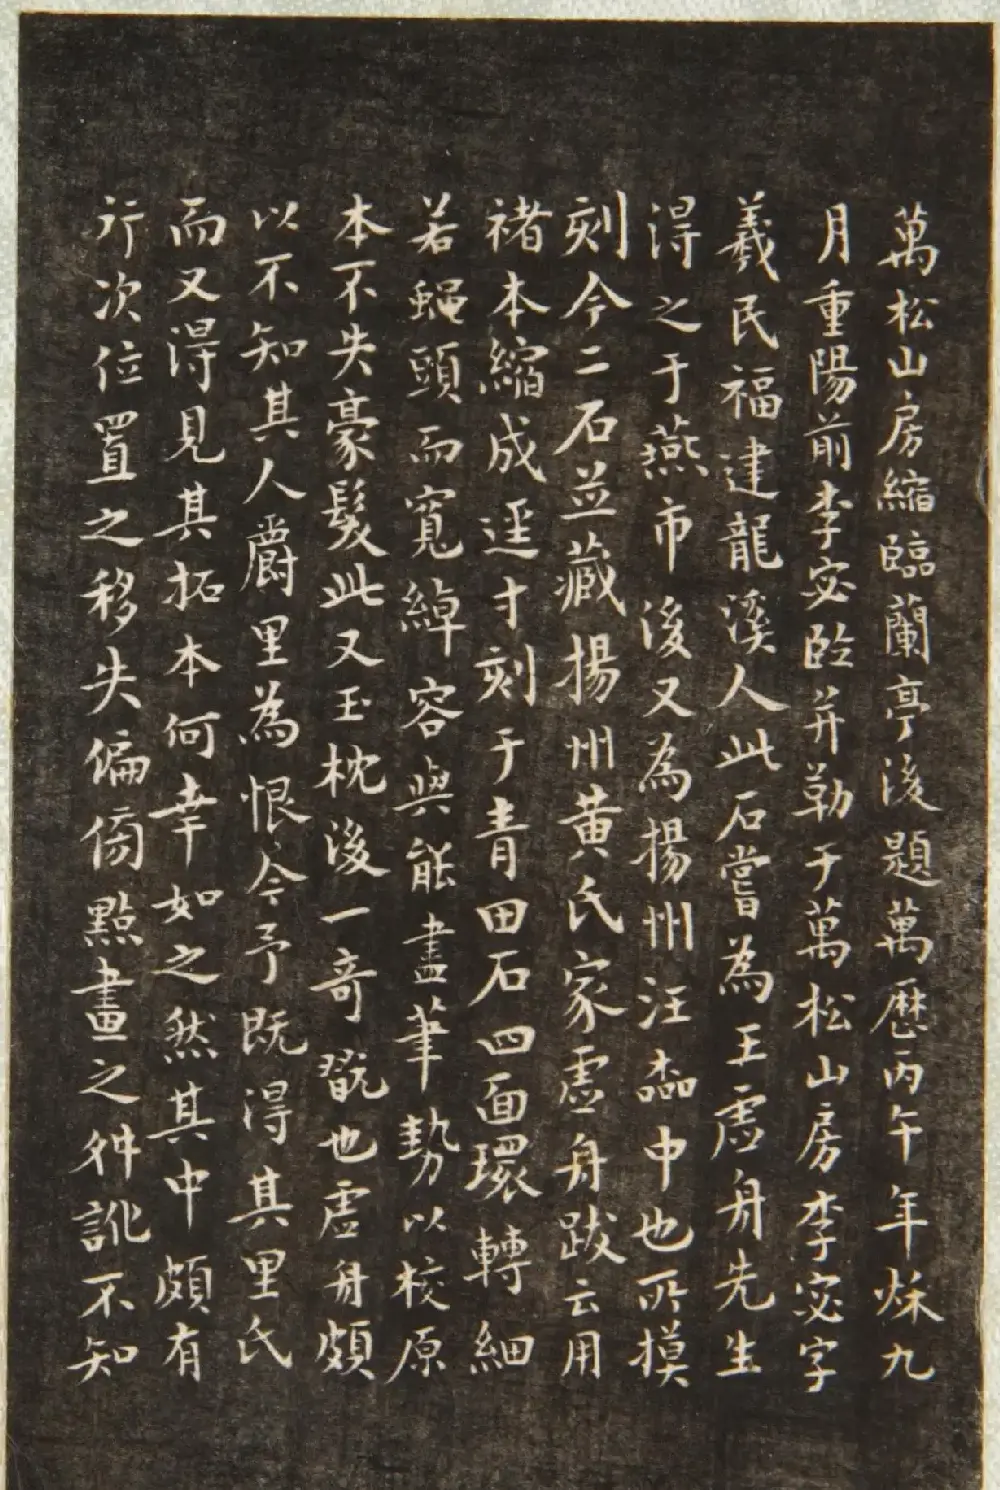 萬松山房縮臨蘭亭後題萬曆丙午年秌九
月重陽前李宓臨并勒于萬松山房李宓字
羲民福建龍溪人此石嘗為王虛舟先生
得之于燕市後又為揚州汪中也所摸
刻今二石並藏揚州黄氏家虛舟跋云用
褚本縮成逕寸刻于青田石四面環轉細
若蠅頭而寬綽容與能盡筆勢以校原
本不失豪髮此又玉枕後一奇翫也虛舟頗
以不知其人爵里為恨今予既得其里氏
而又得見其拓本何幸如之然其中頗有
行次位置之移失偏傍點畫之舛訛不知